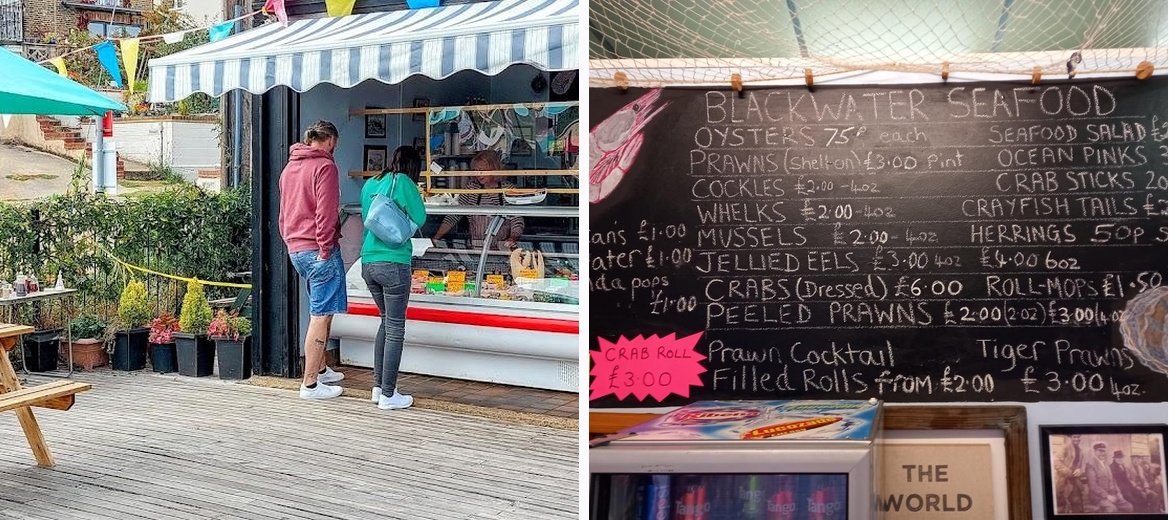 BLACKWATER SEAFOOD
OYSTERS 75P each
SEAFOOD SALAD
PRAWNS (shell on) £3.00 Pint
OCEAN PINKS
COCKLES £2.00 - 4oz
CRAB STICKS
WHELKS £2.00 - 4oz
CRAYFISH TAILS
MUSSELS £2.00 - 4oz
HERRINGS 50p
JELLIED EELS £3.00 4oz £4.00 6oz
CRABS (Dressed) £6.00 ROLL-MOPS £1.50
PEELED PRAWNS £2.00 (2oz) £3.00 (4oz
Prawn Cocktail
Tiger Prawns
Filled Rolls from £2.00
£3.00 4oz.
ans £1.00
ater £1.00
da pops
£1.00
CRAB ROLL
£3.00
Ribena
Lucozade
Tango
Tango
Tango
THE
WORLD